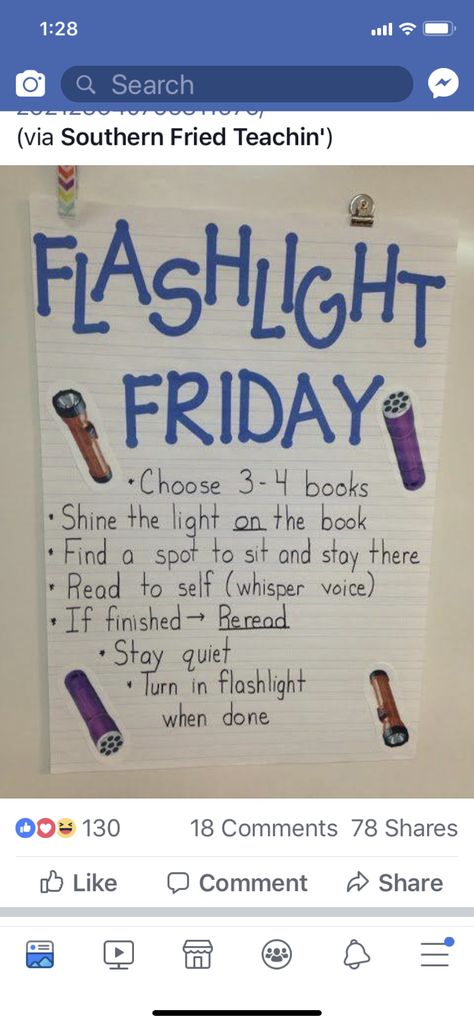 1:28
Search
(via Southern Fried Teachin')
FLASHLIGHT
FRIDAY
• Choose 3-4 books
• Shine the light on the book
• Find a spot to sit and stay there
• Read to self (whisper voice)
• If finished → Reread
• Stay quiet
• Turn in flashlight
when done
130
18 Comments 78 Shares
Like
Comment
Share